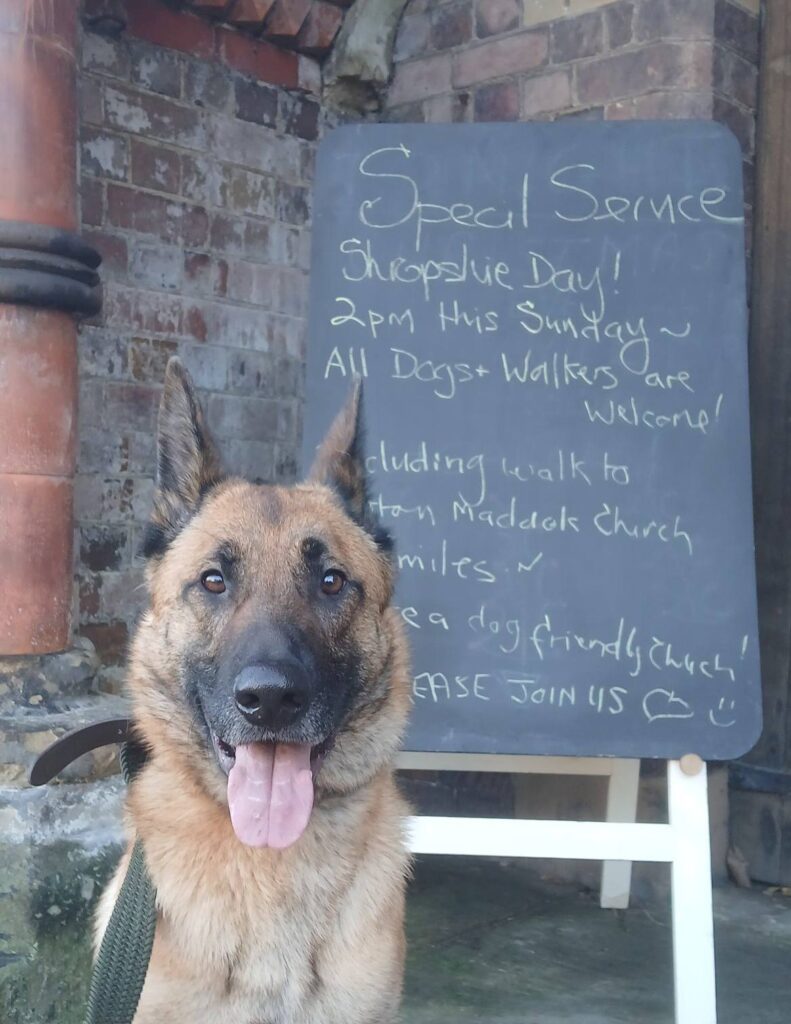 Specil Service
Shropshie Day!
2pm this Sunday ~
All Dogs + Walkers are
Welcome!
cluding walk to
ton Maddok Church
miles ~
e a dog friendly Church!
EASE JOIN US